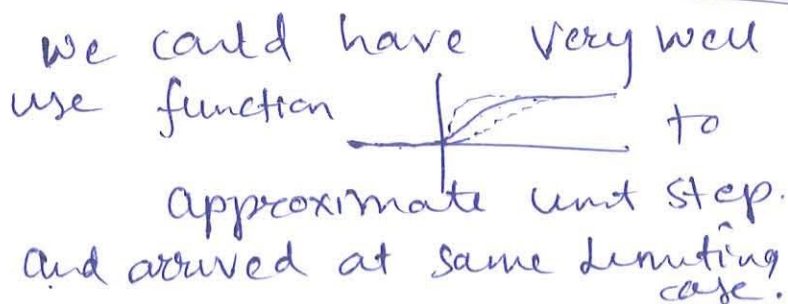 We could have very well
use function to
approximate unit step.
and arrived at same limiting
case.